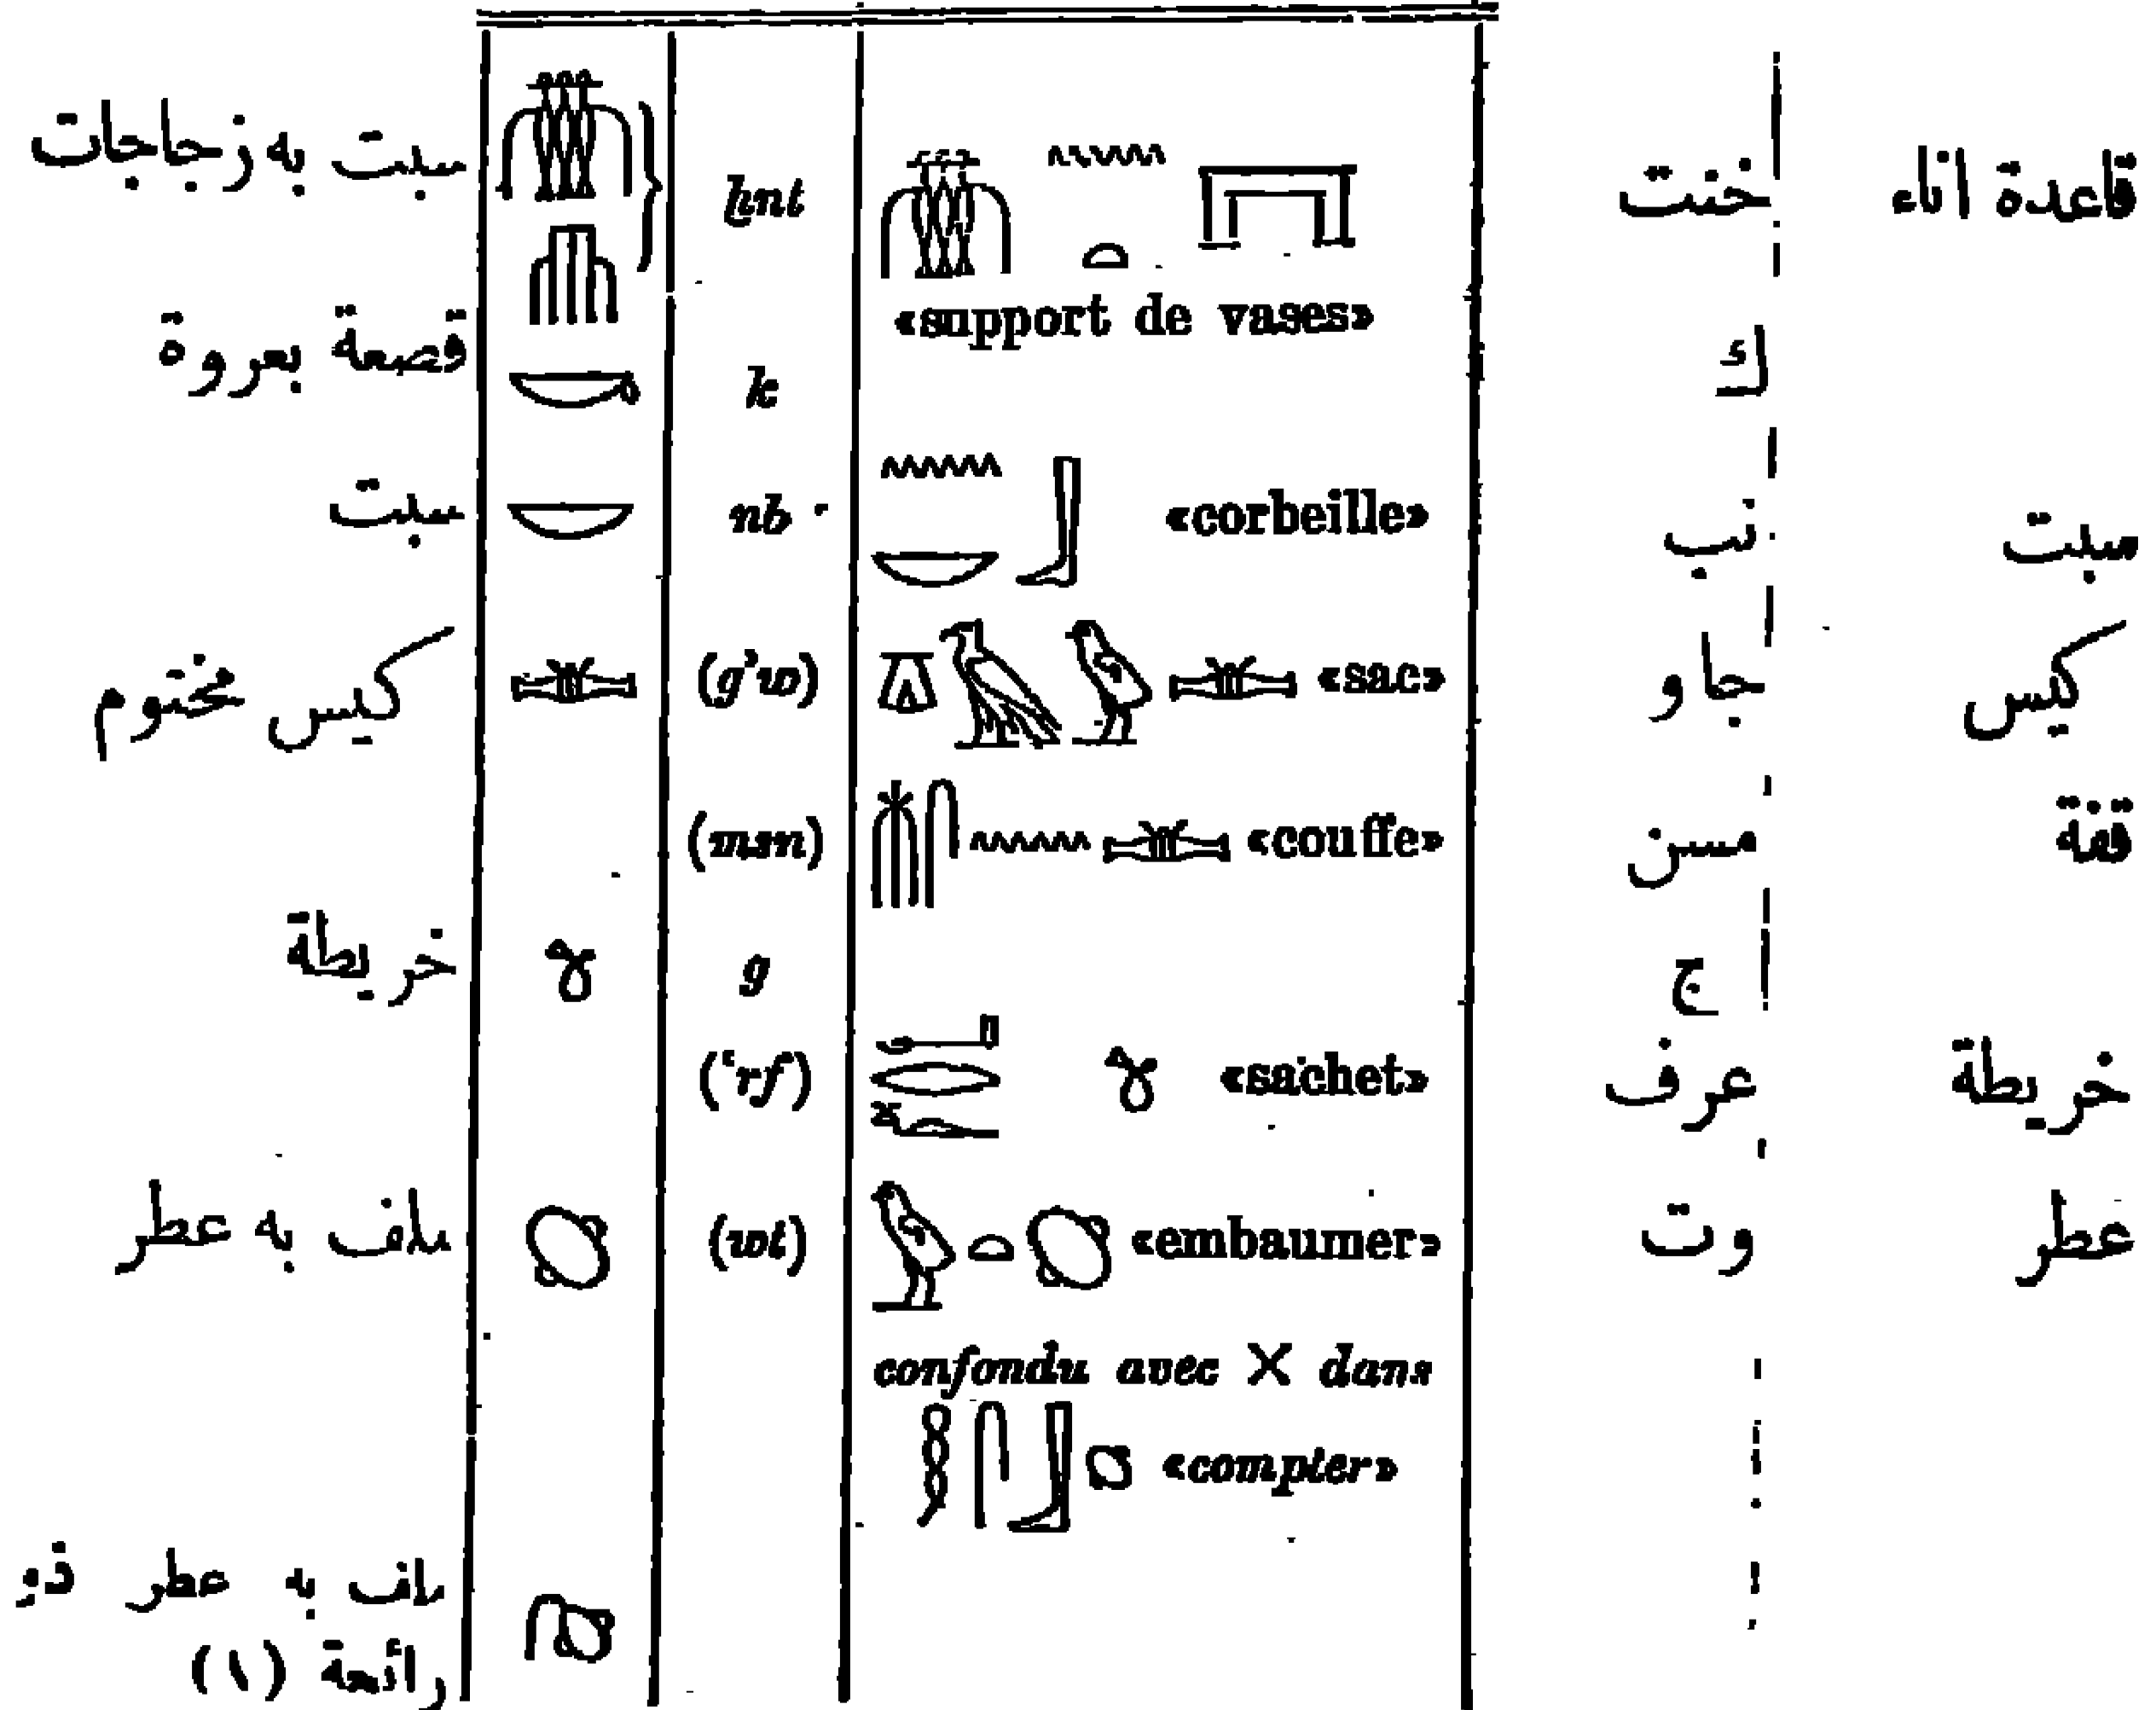 سبت به زجاجات ḫnt خنت قاعدة اناء
«support de vases»
قصعة بعروة k ك
سبت nb «corbeille» نب سبت
كيس مختوم (g’w) «sac» جاو كيس
(msn) «couffe» مسن قفة
خريطة g ج
(‘rf) «sachet» عرف خريطة
ملف به عطر (wt) «embaumer» وت عطر
confondu avec × dans
«compter»
ملف به عطر ذو
رائحة (١)